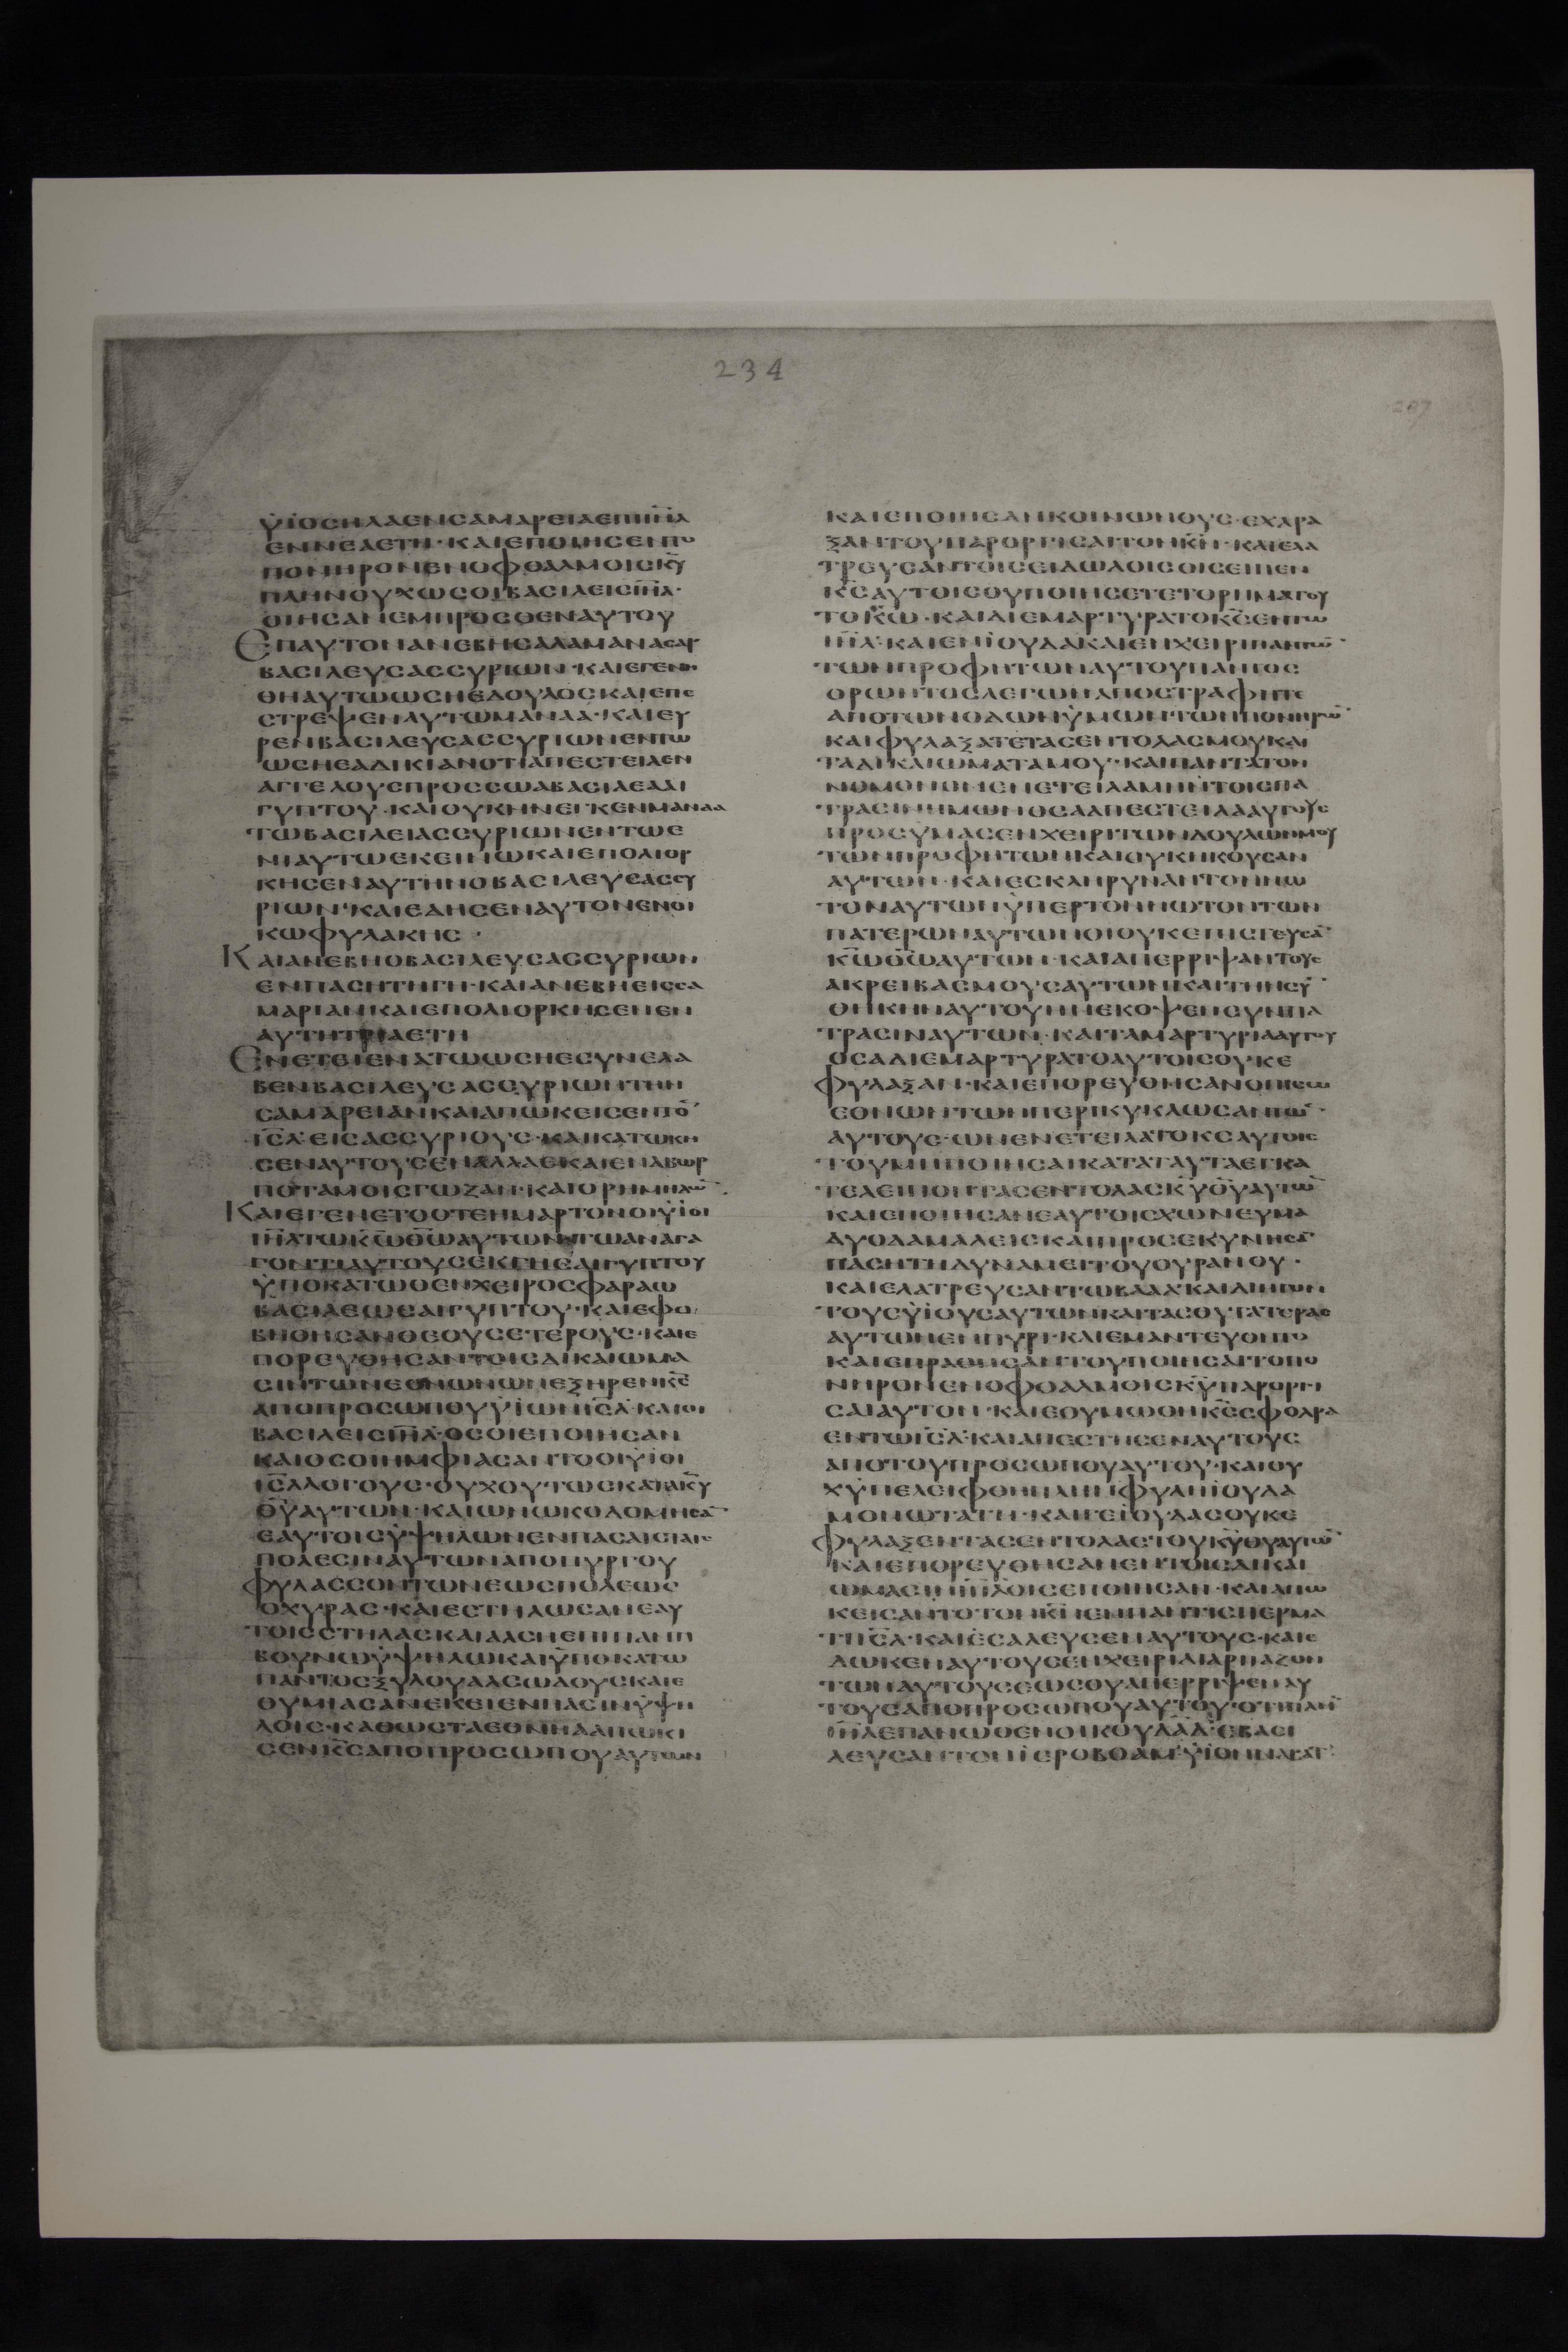 234
207
ΫΙΟСΗΛΑΕΝСΑΜΑΡΕΙΑΕΠΙΙΗΛ
ΕΝΝΕΑΕΤΗ·ΚΑΙΕΠΟΙΗСΕΝΤΟ
ΠΟΝΗΡΟΝΕΝΟΦΘΑΛΜΟΙСΚΥ
ΠΛΗΝΟΥΧΩСΟΙΒΑСΙΛΕΙСΙΗΛ·
ΟΙΗСΑΝΕΜΠΡΟСΘΕΝΑΥΤΟΥ
ΕΠΑΥΤΟΝΑΝΕΒΗСΑΛΑΜΑΝΑСΑΡ
ΒΑСΙΛΕΥСΑССΥΡΙΩΝ·ΚΑΙΕΓΕΝΗ
ΘΗΑΥΤΩΩСΗΕΔΟΥΛΟСΚΑΙΕΠΕ
СΤΡΕΨΕΝΑΥΤΩΜΑΝΑΑ·ΚΑΙΕΥ
ΡΕΝΒΑСΙΛΕΥСΑССΥΡΙΩΝΕΝΤΩ
ΩСΗΕΑΔΙΚΙΑΝΟΤΙΑΠΕСΤΕΙΛΕΝ
ΑΓΓΕΛΟΥСΠΡΟССΩΑΒΑСΙΛΕΑΑΙ
ΓΥΠΤΟΥ·ΚΑΙΟΥΚΗΝΕΓΚΕΝΜΑΝΑΑ
ΤΩΒΑСΙΛΕΙΑССΥΡΙΩΝΕΝΤΩΕ
ΝΙΑΥΤΩΕΚΕΙΝΩΚΑΙΕΠΟΛΙΟΡ
ΚΗСΕΝΑΥΤΗΝΟΒΑСΙΛΕΥСΑССΥ
ΡΙΩΝ·ΚΑΙΕΔΗСΕΝΑΥΤΟΝΕΝΟΙ
ΚΩΦΥΛΑΚΗС·
ΚΑΙΑΝΕΒΗΟΒΑСΙΛΕΥСΑССΥΡΙΩΝ
ΕΝΠΑСΗΤΗΓΗ·ΚΑΙΑΝΕΒΗΕΙССΑ
ΜΑΡΙΑΝΚΑΙΕΠΟΛΙΟΡΚΗСΕΝΕΝ
ΑΥΤΗΤΡΙΑΕΤΗ
ΕΝΕΤΕΙΕΝΑΤΩΩСΗΕСΥΝΕΛΑ
ΒΕΝΒΑСΙΛΕΥСΑССΥΡΙΩΝΤΗΝ
СΑΜΑΡΕΙΑΝΚΑΙΑΠΩΚΕΙСΕΝΤΟ̄
ΙСΛ·ΕΙСΑССΥΡΙΟΥС·ΚΑΙΚΑΤΩΚΗ
СΕΝΑΥΤΟΥСΕΝΑΛΑΑΕΚΑΙΕΝΑΒΩΡ
ΠΟΤΑΜΟΙСΓΩΖΑΝ·ΚΑΙΟΡΗΜΗΔΩ̄·
ΚΑΙΕΓΕΝΕΤΟΟΤΕΗΜΑΡΤΟΝΟΙΫΙΟΙ
ΙΗΛΤΩΚΩΘΩΑΥΤΩΝΤΩΑΝΑΓΑ
ΓΟΝΤΙΑΥΤΟΥСΕΚΓΗСΑΙΓΥΠΤΟΥ
ΫΠΟΚΑΤΩΘΕΝΧΕΙΡΟСΦΑΡΑΩ
ΒΑСΙΛΕΩСΑΙΓΥΠΤΟΥ·ΚΑΙΕΦΟ
ΒΗΘΗСΑΝΘΕΟΥСΕΤΕΡΟΥС·ΚΑΙΕ
ΠΟΡΕΥΘΗСΑΝΤΟΙСΔΙΚΑΙΩΜΑ
СΙΝΤΩΝΕΘΝΩΝΩΝΕΞΗΡΕΝΚС
ΑΠΟΠΡΟСΩΠΟΥΫΙΩΝΙСΛ·ΚΑΙΟΙ
ΒΑСΙΛΕΙСΙΗΛ·ΟСΟΙΕΠΟΙΗСΑΝ
ΚΑΙΟСΟΙΗΜΦΙΑСΑΝΤΟΟΙΫΙΟΙ
ΙСΛΛΟΓΟΥС·ΟΥΧΟΥΤΩСΚΑΤΑΚΥ
ΘΥΑΥΤΩΝ·ΚΑΙΩΝΩΚΟΔΟΜΗСᾹ
ΕΑΥΤΟΙСΫΨΗΛΩΝΕΝΠΑСΑΙСΤΑΙС
ΠΟΛΕСΙΝΑΥΤΩΝΑΠΟΠΥΡΓΟΥ
ΦΥΛΑССΟΝΤΩΝΕΩСΠΟΛΕΩС
ΟΧΥΡΑС·ΚΑΙΕСΤΗΛΩСΑΝΕΑΥ
ΤΟΙССΤΗΛΑСΚΑΙΑΛСΗΕΠΙΠΑΝΤΙ
ΒΟΥΝΩΫΨΗΛΩΚΑΙΫΠΟΚΑΤΩ
ΠΑΝΤΟСΞΥΛΟΥΑΛСΩΔΟΥСΚΑΙΕ
ΘΥΜΙΑСΑΝΕΚΕΙΕΝΠΑСΙΝΫΨΗ
ΛΟΙС·ΚΑΘΩСΤΑΕΘΝΗΑΑΠΩΚΙ
СΕΝΚСΑΠΟΠΡΟСΩΠΟΥΑΥΤΩΝ
ΚΑΙΕΠΟΙΗСΑΝΚΟΙΝΩΝΟΥС·ΕΧΑΡΑ
ΞΑΝΤΟΥΠΑΡΟΡΓΙСΑΙΤΟΝΚΝ·ΚΑΙΕΛΑ
ΤΡΕΥСΑΝΤΟΙСΕΙΔΩΛΟΙСΟΙСΕΙΠΕΝ
ΚСΑΥΤΟΙСΟΥΠΟΙΗСΕΤΕΤΟΡΗΜΑΤΟΥ
ΤΟΚΩ·ΚΑΙΔΙΕΜΑΡΤΥΡΑΤΟΚСΕΝΤΩ
ΙΗΛ·ΚΑΙΕΝΙΟΥΔΑΚΑΙΕΝΧΕΙΡΙΠΑΝΤΩ̄·
ΤΩΝΠΡΟΦΗΤΩΝΑΥΤΟΥΠΑΝΤΟС
ΟΡΩΝΤΟСΛΕΓΩΝΑΠΟСΤΡΑΦΗΤΕ
ΑΠΟΤΩΝΟΔΩΝΫΜΩΝΤΩΝΠΟΝΗΡΩ̄
ΚΑΙΦΥΛΑΞΑΤΕΤΑСΕΝΤΟΛΑСΜΟΥΚΑΙ
ΤΑΔΙΚΑΙΩΜΑΤΑΜΟΥ·ΚΑΙΠΑΝΤΑΤΟΝ
ΝΟΜΟΝΟΝΕΝΕΤΕΙΛΑΜΗΝΤΟΙСΠΑ
ΤΡΑСΙΝΗΜΩΝΟСΑΑΠΕСΤΕΙΛΑΑΥΤΟΥС
ΠΡΟСΫΜΑСΕΝΧΕΙΡΙΤΩΝΔΟΥΛΩΝΜΟΥ
ΤΩΝΠΡΟΦΗΤΩΝΚΑΙΟΥΚΗΚΟΥСΑΝ
ΑΥΤΩΝ·ΚΑΙΕСΚΛΗΡΥΝΑΝΤΟΝΝΩ
ΤΟΝΑΥΤΩΝΫΠΕΡΤΟΝΝΩΤΟΝΤΩΝ
ΠΑΤΕΡΩΝΑΥΤΩΝΟΙΟΥΚΕΠΙСΤΕΥСᾹ
ΚΩΘΩΑΥΤΩΝ·ΚΑΙΑΠΕΡΡΙΨΑΝΤΟΥС
ΑΚΡΕΙΒΑСΜΟΥСΑΥΤΩΝΚΑΙΤΗΝСῩ
ΘΗΚΗΝΑΥΤΟΥΗΝΕΚΟΨΕΝСΥΝΠΑ
ΤΡΑСΙΝΑΥΤΩΝ·ΚΑΙΤΑΜΑΡΤΥΡΙΑΑΥΤΟΥ
ΟСΑΔΙΕΜΑΡΤΥΡΑΤΟΑΥΤΟΙСΟΥΚΕ
ΦΥΛΑΞΑΝ·ΚΑΙΕΠΟΡΕΥΘΗСΑΝΟΠΙСΩ
ΕΘΝΩΝΤΩΝΠΕΡΙΚΥΚΛΩСΑΝΤΩ̄·
ΑΥΤΟΥС·ΩΝΕΝΕΤΕΙΛΑΤΟΚСΑΥΤΟΙС
ΤΟΥΜΗΠΟΙΗСΑΙΚΑΤΑΤΑΥΤΑΕΓΚΑ
ΤΕΛΕΙΠΟΝΤΑСΕΝΤΟΛΑСΚΥΘΥΑΥΤΩ̄
ΚΑΙΕΠΟΙΗСΑΝΕΑΥΤΟΙСΧΩΝΕΥΜΑ
ΔΥΟΔΑΜΑΛΕΙСΚΑΙΠΡΟСΕΚΥΝΗСᾹ
ΠΑСΗΤΗΔΥΝΑΜΕΙΤΟΥΟΥΡΑΝΟΥ·
ΚΑΙΕΛΑΤΡΕΥСΑΝΤΩΒΑΑΛ·ΚΑΙΔΙΗΓΟΝ
ΤΟΥСΫΙΟΥСΑΥΤΩΝΚΑΙΤΑСΘΥΓΑΤΕΡΑС
ΑΥΤΩΝΕΝΠΥΡΙ·ΚΑΙΕΜΑΝΤΕΥΟΝΤΟ
ΚΑΙΕΠΡΑΘΗСΑΝΤΟΥΠΟΙΗСΑΙΤΟΠΟ
ΝΗΡΟΝΕΝΟΦΘΑΛΜΟΙСΚΥΠΑΡΟΡΓΙ
СΑΙΑΥΤΟΝ·ΚΑΙΕΘΥΜΩΘΗΚССΦΟΔΡΑ
ΕΝΤΩΙСΛ·ΚΑΙΑΠΕСΤΗСΕΝΑΥΤΟΥС
ΑΠΟΤΟΥΠΡΟСΩΠΟΥΑΥΤΟΥ·ΚΑΙΟΥ
ΧΫΠΕΛΕΙΦΘΗΠΛΗΝΦΥΛΗΙΟΥΔΑ
ΜΟΝΩΤΑΤΗ·ΚΑΙΓΕΙΟΥΔΑСΟΥΚΕ
ΦΥΛΑΞΕΝΤΑСΕΝΤΟΛΑСΤΟΥΚΥΘΥΑΥΤΩ̄
ΚΑΙΕΠΟΡΕΥΘΗСΑΝΕΝΤΟΙСΔΙΚΑΙ
ΩΜΑСΙΝΙΗΛΟΙСΕΠΟΙΗСΑΝ·ΚΑΙΑΠΩ
ΚΕΙСΑΝΤΟΤΟΝΚΝΕΝΠΑΝΤΙСΠΕΡΜΑ
ΤΙΙСΛ·ΚΑΙΕСΑΛΕΥСΕΝΑΥΤΟΥС·ΚΑΙΕ
ΔΩΚΕΝΑΥΤΟΥСΕΝΧΕΙΡΙΔΙΑΡΠΑΖΟΝ
ΤΩΝΑΥΤΟΥСΕΩСΟΥΑΠΕΡΡΙΨΕΝΑΥ
ΤΟΥСΑΠΟΠΡΟСΩΠΟΥΑΥΤΟΥ·ΟΤΙΠΛΗ̄
ΙΗΛΕΠΑΝΩΘΕΝΟΙΚΟΥΔΑΔ·ΕΒΑСΙ
ΛΕΥСΑΝΤΟΝΙΕΡΟΒΟΑΜΫΙΟΝΝΑΒΑΤ·